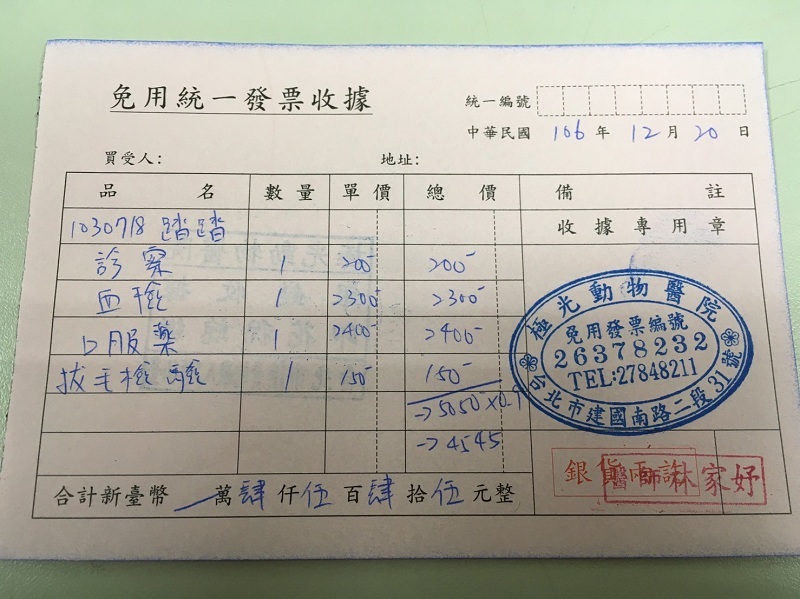 免用統一發票收據
統一編號
中華民國 106 年 12 月 20 日
買受人: 地址:
品名 數量 單價 總價 備註
收據專用章
1030718 踏踏
診察 1 200- 200-
血檢 1 2300- 2300-
口服藥 1 2400- 2400-
拔毛檢驗 1 150- 150-
→5050×0.9
→4545
極光動物醫院
免用發票編號
26378232
TEL:27848211
台北市建國南路二段31號
銀貨兩訖
醫師林家妤
合計新臺幣 一萬肆仟伍百肆拾伍元整